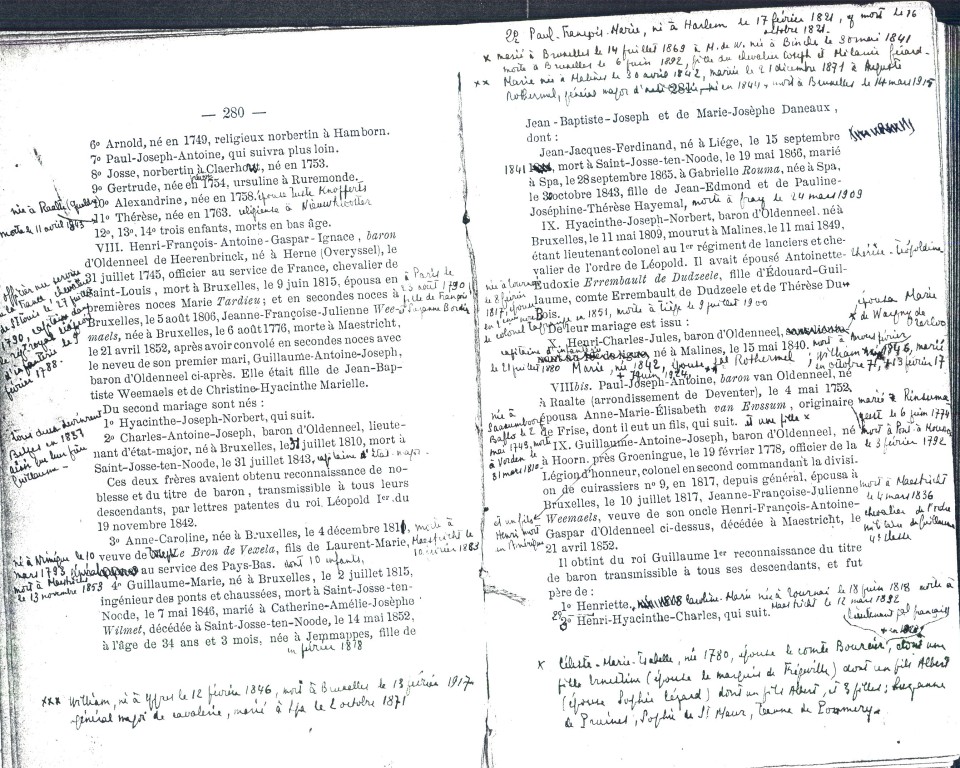 — 280 —
6º Arnold, né en 1749, religieux norbertin à Hamborn.
7º Paul-Joseph-Antoine, qui suivra plus loin.
8º Josse, norbertin à Claerhow, né en 1753.
9º Gertrude, née en 1754, ursuline à Ruremonde.
10º Alexandrine, née en 1758. épouse
11º Thérèse, née en 1763. religieuse à
12º, 13º, 14º trois enfants, morts en bas âge.
née à Raalte
morte le 11 avril 1843
VIII. Henri-François-Antoine-Gaspar-Ignace, baron
d'Oldenneel de Heerenbrinck, né à Herne (Overyssel), le
31 juillet 1745, officier au service de France, chevalier de
Saint-Louis, mort à Bruxelles, le 9 juin 1815, épousa en
premières noces Marie Tardieu; et en secondes noces à
Bruxelles, le 5 août 1806, Jeanne-Françoise-Julienne Wee-
maels, née à Bruxelles, le 6 août 1776, morte à Maestricht,
le 21 avril 1852, après avoir convolé en secondes noces avec
le neveu de son premier mari, Guillaume-Antoine-Joseph,
baron d'Oldenneel ci-après. Elle était fille de Jean-Bap-
tiste Weemaels et de Christine-Hyacinthe Marielle.
à Paris le
août 1790
fille de François
et Suzanne
officier au service
de France, chevalier
de St Louis le 27 juillet
1790, capitaine au
d'infanterie le 9
février 1788.
Du second mariage sont nés :
1º Hyacinthe-Joseph-Norbert, qui suit.
2º Charles-Antoine-Joseph, baron d'Oldenneel, lieute-
nant d'état-major, né à Bruxelles, le 31 juillet 1810, mort à
Saint-Josse-ten-Noode, le 31 juillet 1843, capitaine d'Etat-major.
Ces deux frères avaient obtenu reconnaissance de no-
blesse et du titre de baron, transmissible à tous leurs
descendants, par lettres patentes du roi Léopold Ier du
19 novembre 1842.
Tous deux devinrent
Belges en 1837
ainsi que leur frère
Guillaume.
3º Anne-Caroline, née à Bruxelles, le 4 décembre 181
veuve de Bron de Vexela, fils de Laurent-Marie,
au service des Pays-Bas. dont 10 enfants,
morte à
Maestricht le
10 février 1883
né à Nimègue le 10
mars 1793
mort à Maestricht
le 13 novembre 1853
4º Guillaume-Marie, né à Bruxelles, le 2 juillet 1815,
ingénieur des ponts et chaussées, mort à Saint-Josse-ten-
Noode, le 7 mai 1846, marié à Catherine-Amélie-Josèphe
Wilmet, décédée à Saint-Josse-ten-Noode, le 14 mai 1852,
à l'âge de 34 ans et 3 mois, née à Jemmappes, fille de
en février 1818
xxx William, né à Ypres le 12 février 1846, mort à Bruxelles le 13 février 1917
général major de cavalerie, marié à Spa le 2 octobre 1871
2º Paul-François-Marie, né à Harlem le 17 février 1821, y mort le 16
octobre 1821.
x marié à Bruxelles le 14 juillet 1869 à M. de W. née à Binche le 30 mai 1841
morte à Bruxelles le 6 juin 1892, fille du chevalier Joseph et Mélanie Gérard.
xx Marie née à Malines le 30 avril 1842, mariée le 21 décembre 1871 à Auguste
Rothermel, général major, né en 1844, mort à Bruxelles le 14 mars 1915
281
Jean-Baptiste-Joseph et de Marie-Josèphe Daneaux,
dont :
Jean-Jacques-Ferdinand, né à Liége, le 15 septembre
1841, mort à Saint-Josse-ten-Noode, le 19 mai 1866, marié
à Spa, le 28 septembre 1865, à Gabrielle Rouma, née à Spa,
le 30 octobre 1843, fille de Jean-Edmond et de Pauline-
Joséphine-Thérèse Hayemal, morte à le 24 mars 1909
IX. Hyacinthe-Joseph-Norbert, baron d'Oldenneel, né à
Bruxelles, le 11 mai 1809, mourut à Malines, le 11 mai 1849,
étant lieutenant colonel au 1er régiment de lanciers et che-
valier de l'ordre de Léopold. Il avait épousé Antoinette-
Eudoxie Errembault de Dudzeele, fille d'Édouard-Guil-
laume, comte Errembault de Dudzeele et de Thérèse Du
Bois.
Thérèse-Léopoldine
née à Tournai
le 8 février
1817,
le colonel en 1851, morte à Liège le 9 juillet 1900
De leur mariage est issu :
X. Henri-Charles-Jules, baron d'Oldenneel,
né à Malines, le 15 mai 1840.
capitaine d'infanterie
le 21 juillet 1880
épousa Marie
x de Wargny de
Marie, née 1842, épouse Rothermel ; William 1846, marié
en octobre 71, 13 février 17
VIIIbis. Paul-Joseph-Antoine, baron van Oldenneel, né
à Raalte (arrondissement de Deventer), le 4 mai 1752,
épousa Anne-Marie-Élisabeth van Ewssum, originaire
de Frise, dont il eut un fils, qui suit. et une fille x
né à
Baflo le 2
mai 1743, morte
à Vorden le
31 mars 1810
mariés à Rinsuma
le 6 juin 1774
IX. Guillaume-Antoine-Joseph, baron d'Oldenneel, né
à Hoorn, près Groeningue, le 19 février 1778, officier de la
Légion d'honneur, colonel en second commandant la divisi-
on de cuirassiers nº 9, en 1817, depuis général, épousa à
Bruxelles, le 10 juillet 1817, Jeanne-Françoise-Julienne
Weemaels, veuve de son oncle Henri-François-Antoine-
Gaspar d'Oldenneel ci-dessus, décédée à Maestricht, le
21 avril 1852.
mort à
le 3 février 1792
mort à Maestricht
le 4 mars 1836
chevalier de l'ordre
militaire de Guillaume
4e classe
et un fils
Henri mort
en Amérique
Il obtint du roi Guillaume Ier reconnaissance du titre
de baron transmissible à tous ses descendants, et fut
père de :
1º Henriette, Caroline Marie née à Tournai le 18 juin 1818 morte à
Maestricht le 12 mars 1892
Henri-Hyacinthe-Charles, qui suit.
lieutenant gal français
x Céleste-Marie-Isabelle, née 1780, épouse le comte Bourcier, dont une
fille Ernestine (épouse le marquis de Fréville) dont un fils Albert
(épouse Sophie Gérard) dont un fils Albert, et 3 filles; Suzanne
de Pruines, Sophie de St Maur, Jeanne de Pommery.